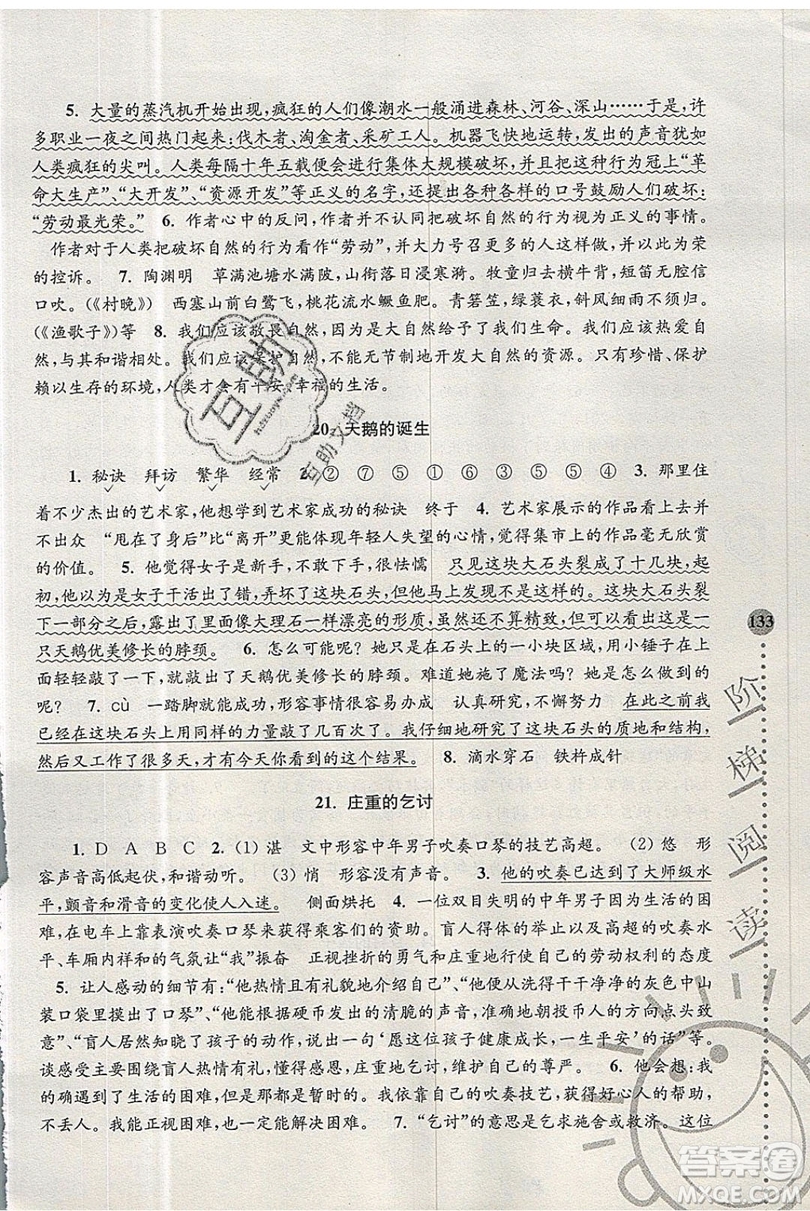 5. 大量的蒸汽机开始出现,疯狂的人们像潮水一般涌进森林、河谷、深山……于是,许
多职业一夜之间热门起来:伐木者、淘金者、采矿工人。机器飞快地运转,发出的声音犹如
人类疯狂的尖叫。人类每隔十年五载便会进行集体大规模破坏,并把这种行为冠上“革
命大生产”、“大开发”、“资源开发”等正义的名字,还提出各种各样的口号鼓励人们破坏:
“劳动最光荣。” 6. 作者心中的反问,作者并不认同把破坏自然的行为视为正义的事情。
作者对于人类把破坏自然的行为看作“劳动”,并大力号召大家都这样做,并以此为荣
的控诉。 7. 陶渊明 草满池塘水满陂,山衔落日浸寒漪。牧童归去横牛背,短笛无腔信
口吹。(《村晚》) 西塞山前白鹭飞,桃花流水鳜鱼肥。青箬笠,绿蓑衣,斜风细雨不须归。
(《渔歌子》)等 8. 我们应该敬畏自然,因为是大自然给予了我们生命。我们应该热爱自
然,与其和谐相处。我们应该节制,不能无节制地开发大自然的资源。只有珍惜、保护
赖以生存的环境,人类才会有平安、幸福的生活。
20. 天鹅的诞生
1. 秘诀 拜访 繁华 经常 2. ② ⑦ ⑤ ① ⑥ ③ ⑤ ⑤ ④ 3. 那里住
着不少杰出的艺术家,他想学到艺术家成功的秘诀 终于 4. 艺术家展示的作品都并
不出众 “甩在了身后”比“离开”更能体现年轻人失望的心情,觉得集市上的作品毫无欣赏
的价值。 5. 他觉得女子是新手,不敢敲,很怯懦 只见这块大石头裂成了十几块,
原来是女子干活出了错,弄坏了这块石头,但是他还是走近了。这块大石头裂
下一部分之后,露出了里面像大理石一样漂亮的形质,虽然还不算精致,但可以看得出是一
只天鹅优美修长的脖颈。 6. 怎么可能呢?她只负责石头上的一小块区域,用小锤子上上
下下敲了一下,就敲出了天鹅优美修长的脖颈。难道她施了魔法吗?她是怎么做到的
呢? 7. cù 一踏脚就能成功,形容事情很容易办成 认真研究,不懈努力 在此之前我
已经在这块石头上用同样的力量敲了几百次了。我仔细地研究了这块石头的质地和结构,
然后又工作了很多天,才有今天你看到的这个结果。 8. 滴水穿石 铁杵成针
21. 庄重的乞讨
1. D A B C 2. (1) 湛 文中形容中年男子吹奏口琴的技艺高超。 (2) 悠 形
容声音高低起伏,和谐动听。 (3) 悄 形容没有声音。 3. 他的吹奏已达到了大师级水
平,颤音和滑音的变化使人入迷。 侧面烘托 4. 一位双目失明的中年男子遇到生活的困
难,在电车上靠表演吹奏口琴获得乘客们的资助。盲人得体的举止以及高超的吹奏水
平、车厢和谐的气氛让“我”振奋 正视挫折的勇气和庄重地行使自己的劳动权利的态度
5. 让人感动的细节有:“他热情且有礼貌地介绍自己”;“他便从洗得干干净净的灰色中山
装口袋里摸出了口琴”;“他凭硬币投击所发出的清脆的声音,准确无误地朝投币人的方向
深深地鞠躬”等;“盲人居然摸了孩子的手,动情地说‘愿这位孩子健康成长,一生平安’的话”等。
谈感受主要围绕盲人热情有礼,懂得感恩,庄重地乞讨,维护自己的尊严。 6. 他会想:我
的确遇到了生活的困难,但困难是暂时的。我用自己的吹奏技艺,获得好心人的帮助,
不丢人。我正视困难,也一定能解决困难。 7. “乞讨”的意思是乞求施舍或救济。这位
133
阶
梯
阅
读
互助
互助文档
答案圈
MXQE.COM